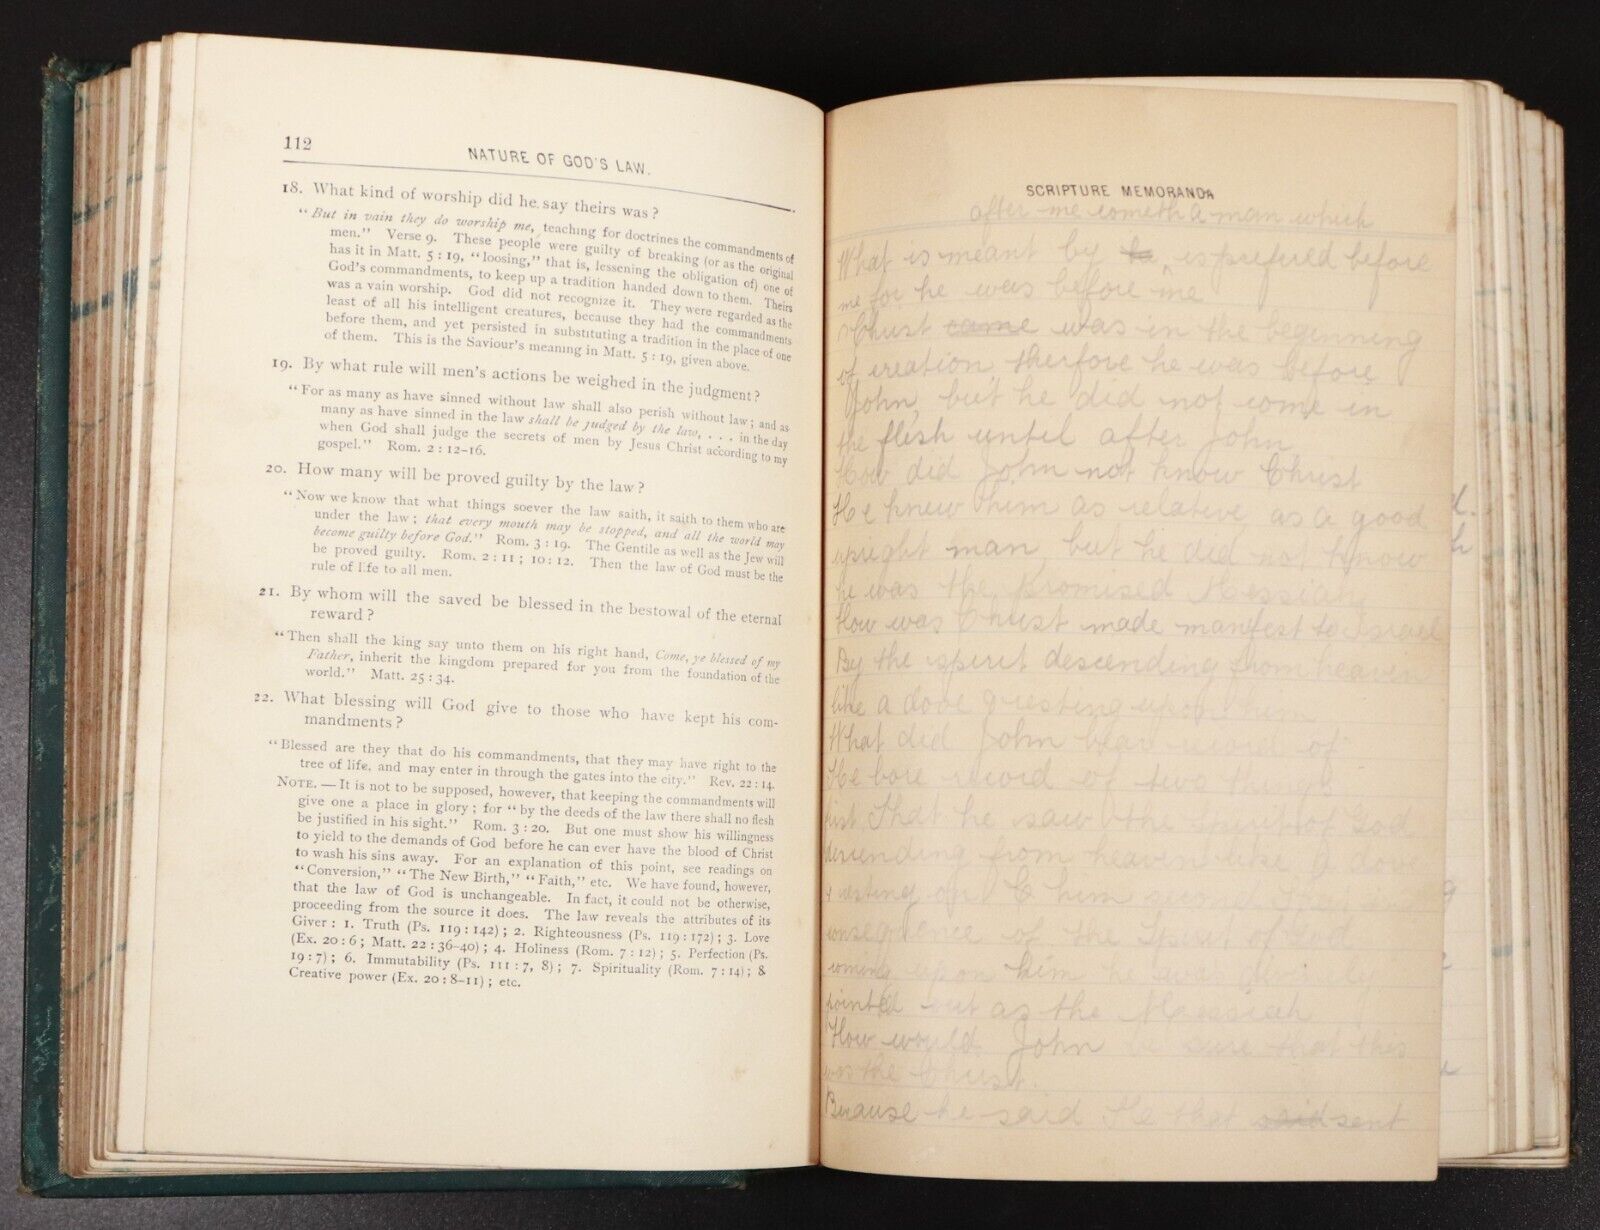 112
NATURE OF GOD'S LAW.
18. What kind of worship did he say theirs was?
"But in vain they do worship me, teaching for doctrines the commandments of
men." Verse 9. These people were guilty of breaking (or as the original
has it in Matt. 5:19, "loosing," that is, lessening the obligation of) one of
God's commandments, to keep up a tradition handed down to them. Theirs
was a vain worship. God did not recognize it. They were regarded as the
least of all his intelligent creatures, because they had the commandments
before them, and yet persisted in substituting a tradition in the place of one
of them. This is the Saviour's meaning in Matt. 5:19, given above.
19. By what rule will men's actions be weighed in the judgment?
"For as many as have sinned without law shall also perish without law; and as
many as have sinned in the law shall be judged by the law, . . . in the day
when God shall judge the secrets of men by Jesus Christ according to my
gospel." Rom. 2:12-16.
20. How many will be proved guilty by the law?
"Now we know that what things soever the law saith, it saith to them who are
under the law; that every mouth may be stopped, and all the world may
become guilty before God." Rom. 3:19. The Gentile as well as the Jew will
be proved guilty. Rom. 2:11; 10:12. Then the law of God must be the
rule of life to all men.
21. By whom will the saved be blessed in the bestowal of the eternal
reward?
"Then shall the king say unto them on his right hand, Come, ye blessed of my
Father, inherit the kingdom prepared for you from the foundation of the
world." Matt. 25:34.
22. What blessing will God give to those who have kept his com-
mandments?
"Blessed are they that do his commandments, that they may have right to the
tree of life, and may enter in through the gates into the city." Rev. 22:14.
NOTE.—It is not to be supposed, however, that keeping the commandments will
give one a place in glory; for "by the deeds of the law there shall no flesh
be justified in his sight." Rom. 3:20. But one must show his willingness
to yield to the demands of God before he can ever have the blood of Christ
to wash his sins away. For an explanation of this point, see readings on
"Conversion," "The New Birth," "Faith," etc. We have found, however,
that the law of God is unchangeable. In fact, it could not be otherwise,
proceeding from the source it does. The law reveals the attributes of its
Giver: 1. Truth (Ps. 119:142); 2. Righteousness (Ps. 119:172); 3. Love
(Ex. 20:6; Matt. 22:36-40); 4. Holiness (Rom. 7:12); 5. Perfection (Ps.
19:7); 6. Immutability (Ps. 111:7, 8); 7. Spirituality (Rom. 7:14); 8
Creative power (Ex. 20:8-11); etc.
SCRIPTURE MEMORANDA
after me cometh a man which
What is meant by he is prefered before
me for he was before me
Christ came was in the beginning
of creation therfore he was before
John, but he did not come in
the flesh until after John
How did John not know Christ
He knew him as relative, as a good
upright man, but he did not know
he was the Promised Messiah
How was Christ made manifest to Israel
By the spirit descending from heaven
like a dove & resting upon him
What did John bear record of
He bore record of two things
first That he saw the spirit of God
descending from heaven like a dove
& resting upon him
consequence of the spirit of
coming upon him he was
pointed out as the Messiah
How would John be sure that this
was the Christ.
Because he said He that said sent